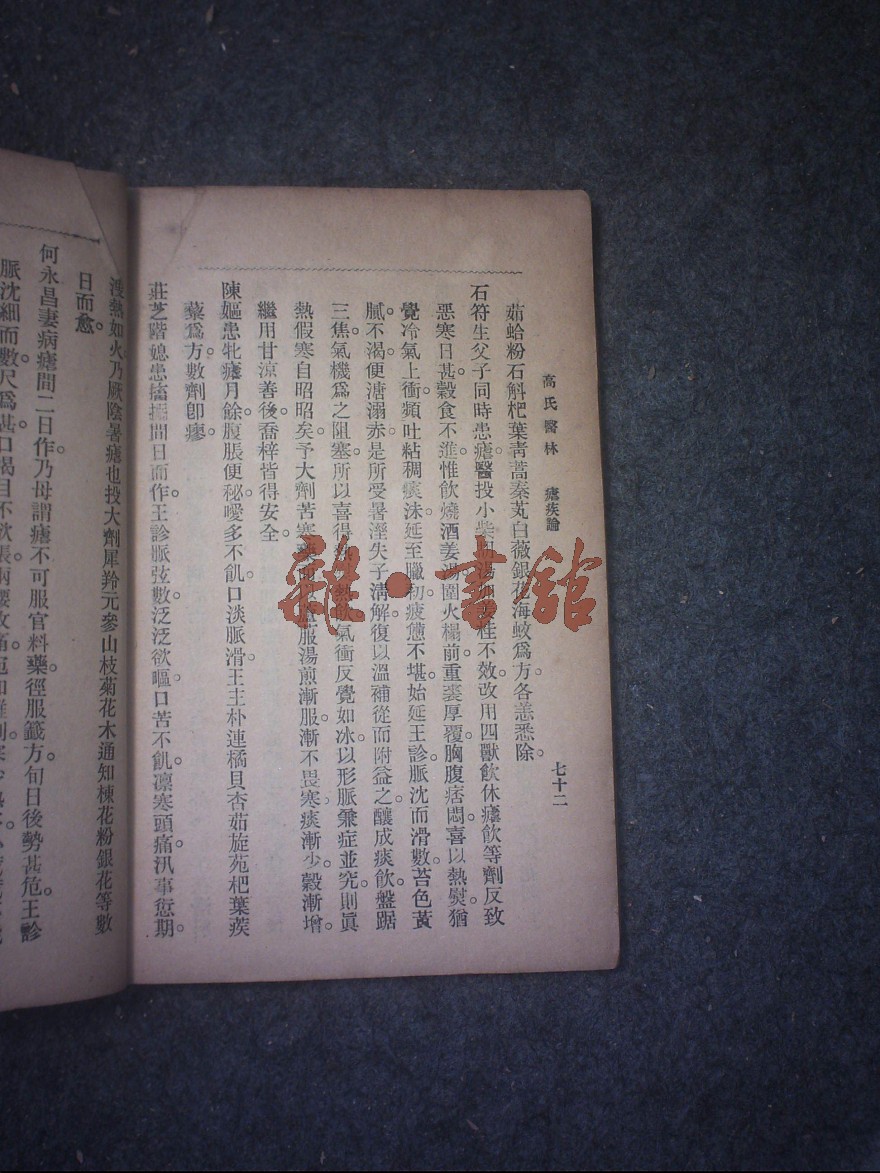 高氏醫林　瘧疾論　七十二
茹蛤粉石斛杷葉靑蒿秦艽白薇銀花海蛟爲方各恙悉除。
石符生父子同時患瘧醫投小柴湯不效改用四獸飮休瘧飮等劑反致
惡寒日甚穀食不進惟飮燒酒姜湯圍火榻前重裘厚覆胸腹痞悶喜以熱熨猶
覺冷氣上衝頻吐粘稠痰沫延至臘初疲憊不堪始延王診脈沈而滑數苔色黃
膩不渴便溏溺赤是所受暑溼失于淸解復以溫補從而附益之釀成痰飮盤踞
三焦氣機爲之阻塞所以喜得熱飮氣衝反覺如冰以形脈兼症並究則眞
熱假寒自昭昭矣予大劑苦寒服湯煎漸服漸不畏寒痰漸少穀漸增。
繼用甘涼善後喬梓皆得安全。
陳嫗患牝瘧月餘腹脹便秘噯多不飢口淡脈滑王主朴連橘貝杏茹旋苑杷葉蒺
藜爲方數劑卽瘳
莊芝階媳患間日而作王診脈弦數泛泛欲嘔口苦不飢凛寒頭痛汛事愆期。
溲熱如火乃厥陰暑瘧也投大劑犀羚元參山枝菊花木通知楝花粉銀花等數
日而愈。
何永昌妻病瘧間二日作乃母謂瘧不可服官料藥徑服籤方旬日後勢甚危王診
脈沈細而數尺爲甚口渴目不欲張兩腰收痛